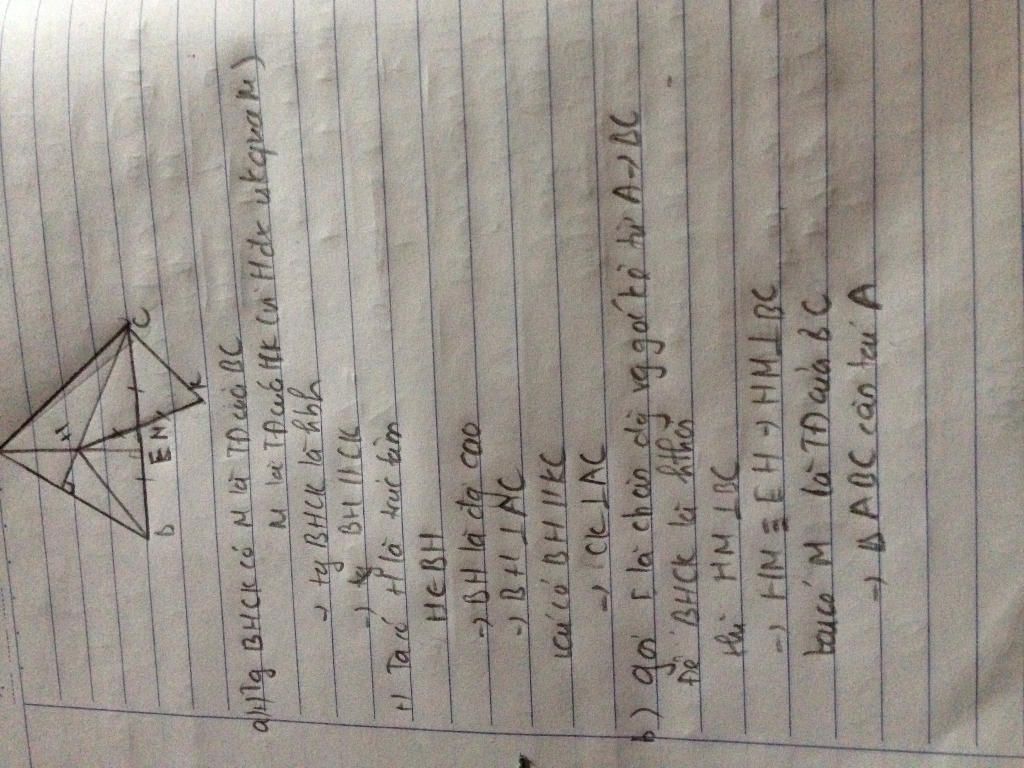 H
C
B
E
M
K
a) +) Tg BHCK có M là TĐ của BC
M là TĐ của HK (vì H đx vs K qua M)
→ tg BHCK là hbh
→ BH // CK
+) Ta có H là trực tâm
H ∈ BH
→ BH là đg cao
→ BH ⊥ AC
mà có BH // KC
→ CK ⊥ AC
b) gọi E là chân đg vg góc kẻ từ A → BC
Để BHCK là hthoi
thì HM ⊥ BC
→ HM ≡ EH → HM ⊥ BC
có M là TĐ của BC
→ Δ ABC cân tại A